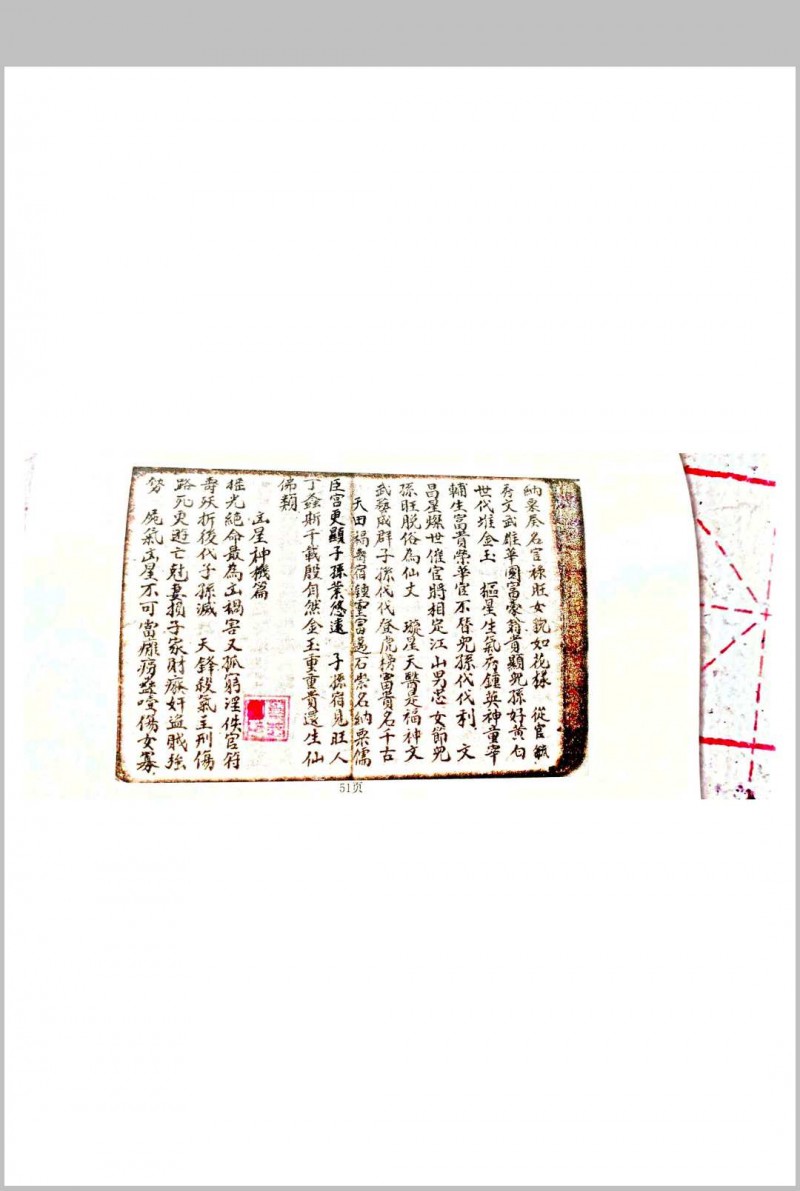 納粟奏名官祿旺女貌如花樣　從官毓
秀文武雄華園富豪翁貴顯兒孫好黃白
世代堆金玉　樞星生氣秀鍾英神童宰
輔生富貴榮華官不替兒孫代代利　文
昌星燦世催官將相定江山男忠女節兒
孫旺脫俗為仙丈　璇星天醫是福神文
武藝成群子孫代代登虎榜富貴名千古
天田福壽宿錢重富過石崇名納粟儒
臣宮更顯子孫業悠遠　子孫宿見旺人
丁螽斯千載殷自然金玉重重貴還生仙
佛類
凶星神機篇
推光絕命最為凶禍害又孤窮淫佚官符
壽殀折後代子孫滅　天鋒殺氣主刑傷
路死更逃亡尅妻損子家財廢奸盜賊強
勞　屍氣凶星不可當癱癆蠱噎傷女寡
51页